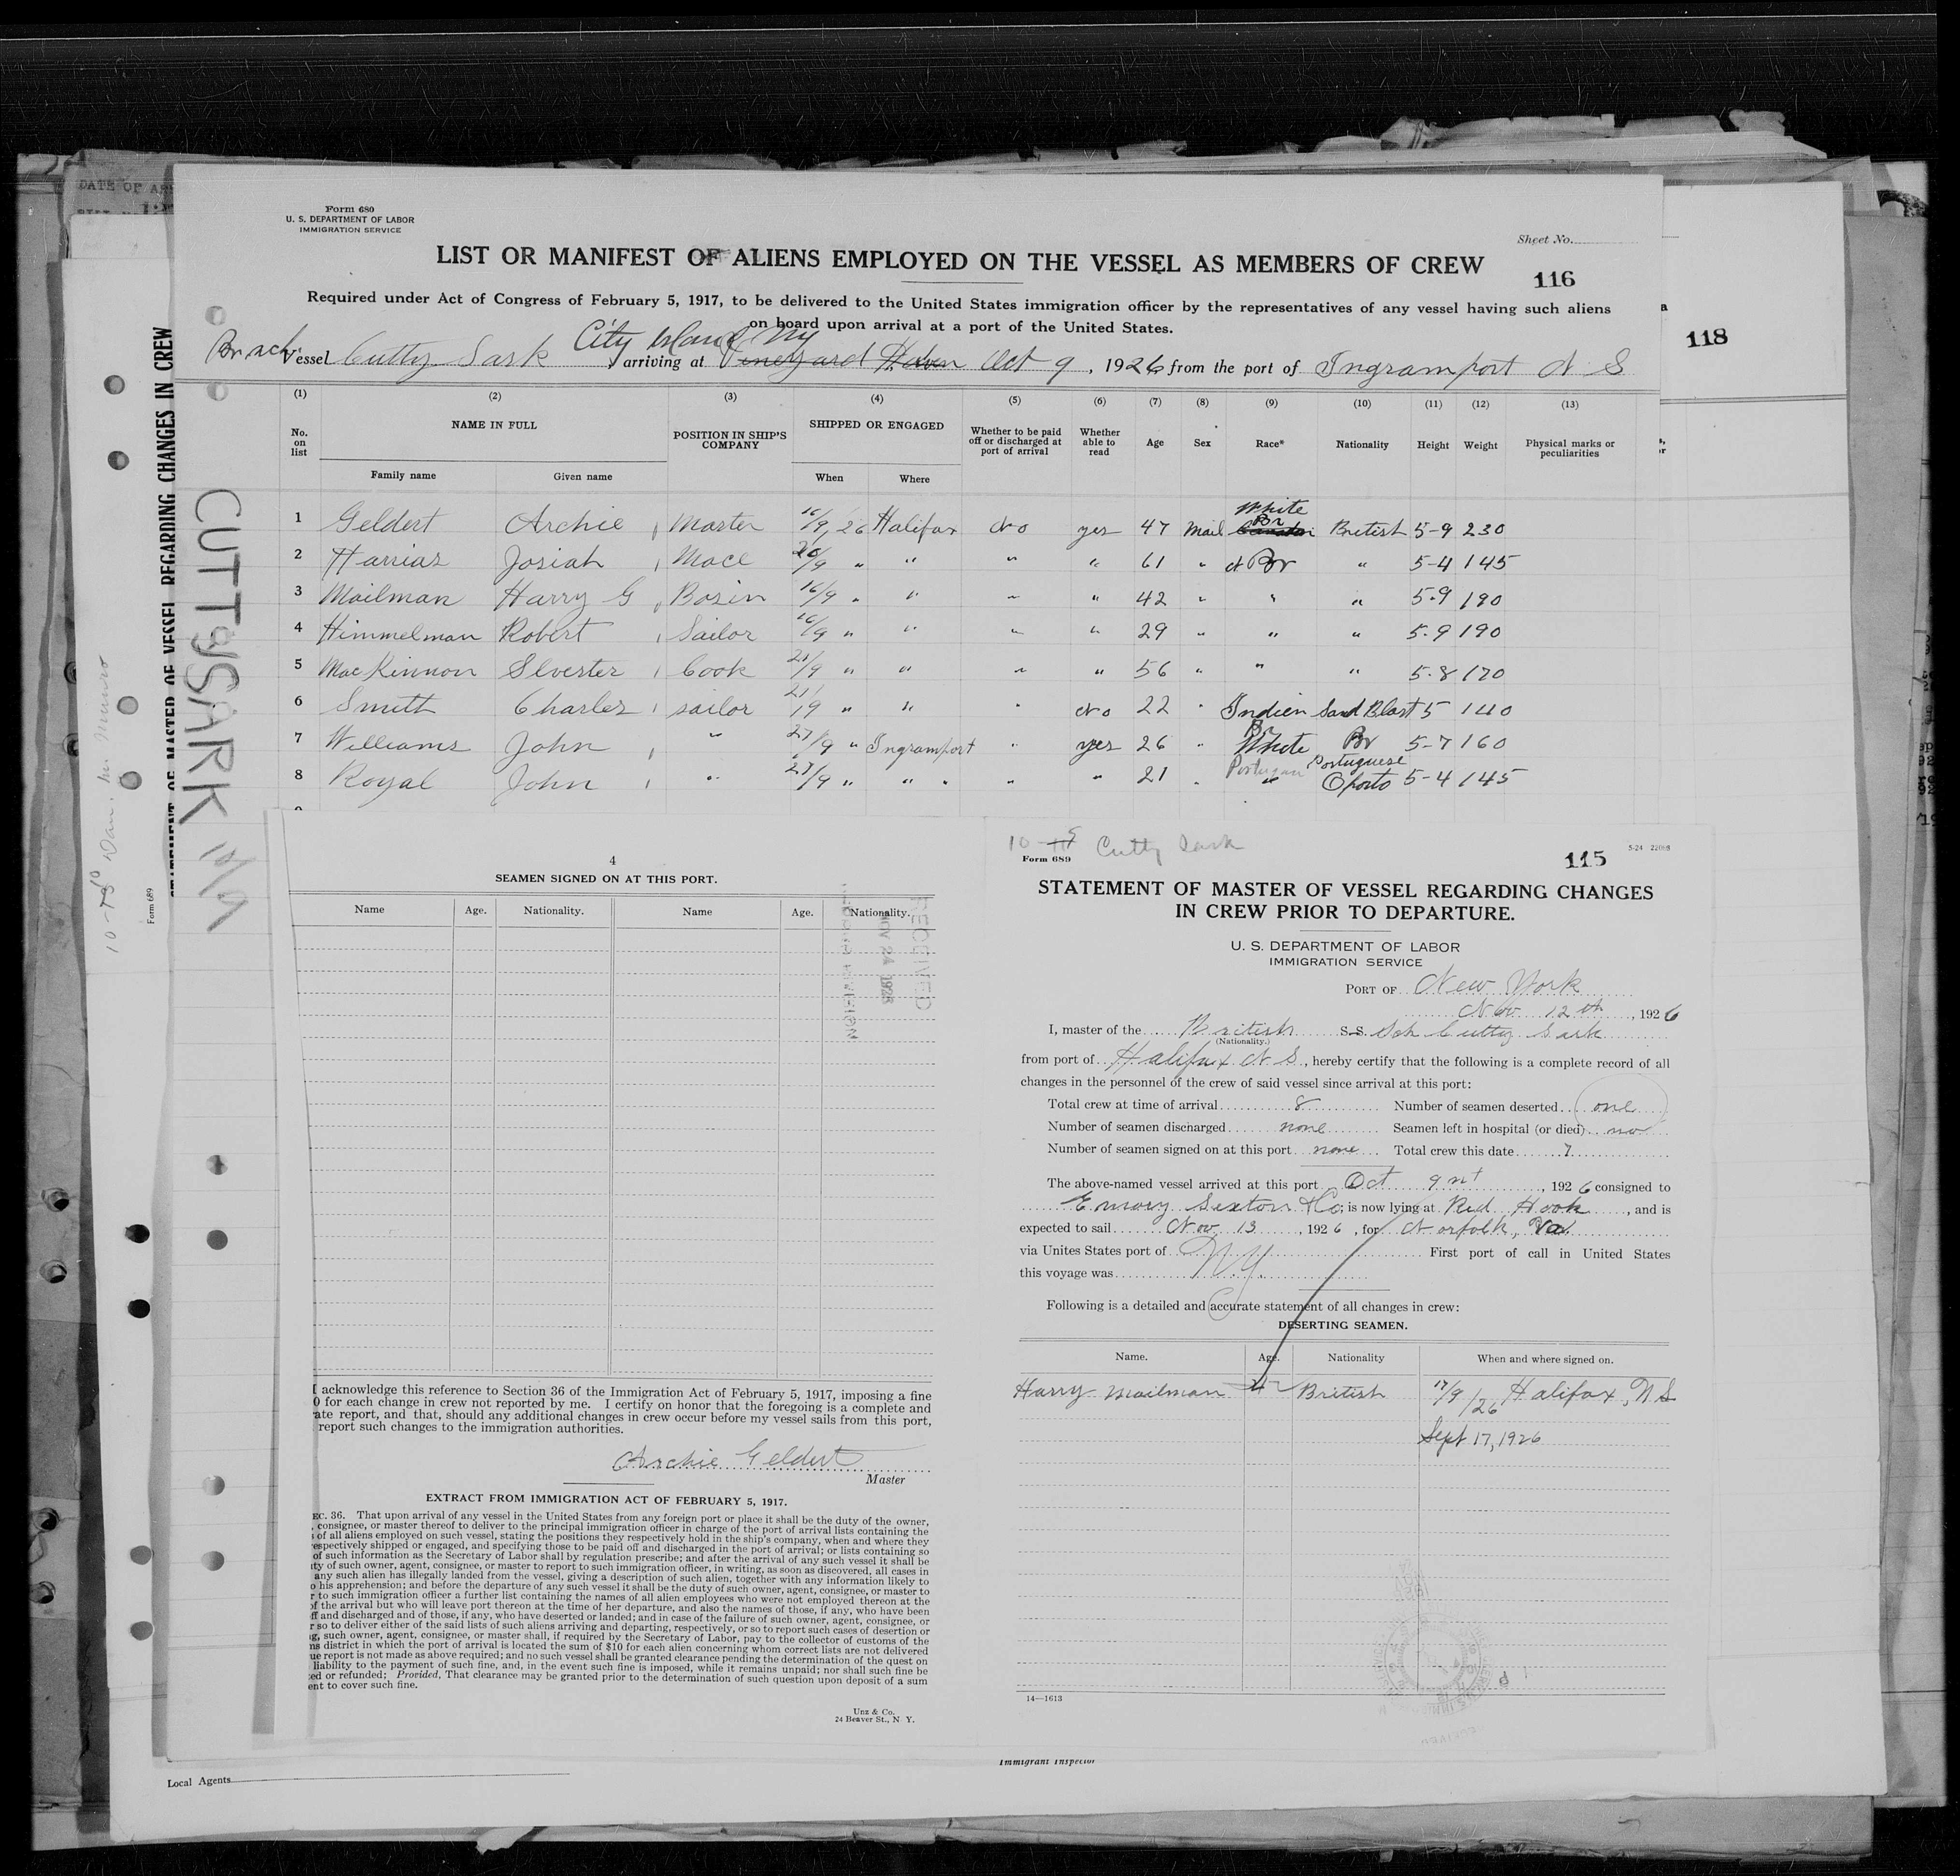 DATE OF AR
Form 680
U. S. DEPARTMENT OF LABOR
IMMIGRATION SERVICE
Sheet No.
LIST OR MANIFEST OF ALIENS EMPLOYED ON THE VESSEL AS MEMBERS OF CREW
116
Required under Act of Congress of February 5, 1917, to be delivered to the United States immigration officer by the representatives of any vessel having such aliens
on board upon arrival at a port of the United States.
118
City Island Ny
Br sch Vessel Cutty Sark arriving at Vineyard Haven Oct 9, 1926 from the port of Ingramport N S
(1) (2) (3) (4) (5) (6) (7) (8) (9) (10) (11) (12) (13)
No. on list NAME IN FULL POSITION IN SHIP'S COMPANY SHIPPED OR ENGAGED Whether to be paid off or discharged at port of arrival Whether able to read Age Sex Race* Nationality Height Weight Physical marks or peculiarities
Family name Given name When Where
White
Br
1 Geldert Archie Master 16/9 26 Halifax No yes 47 Mail British 5-9 230
2 Harrias Josiah Mace 20/9 " " " " 61 " Br " 5-4 145
3 Mailman Harry G Bosin 16/9 " " " " 42 " " " 5-9 190
4 Himmelman Robert Sailor 16/9 " " " " 29 " " " 5-9 190
5 MacKinnon Slvester Cook 21/9 " " " " 56 " " " 5-8 170
6 Smith Charles sailor 21/9 " " " No 22 " Indien Sand Blast 5 140
Br
7 Williams John " 27/9 " Ingramport " yes 26 " White Br 5-7 160
Portugan Portuguese
8 Royal John " 27/9 " " " " 21 " " Oporto 5-4 145
CUTTY SARK 10/9
STATEMENT OF MASTER OF VESSEL REGARDING CHANGES IN CREW
Form 689
4
SEAMEN SIGNED ON AT THIS PORT.
Name Age. Nationality. Name Age. Nationality.
RECEIVED
NOV 24 1926
I acknowledge this reference to Section 36 of the Immigration Act of February 5, 1917, imposing a fine
0 for each change in crew not reported by me. I certify on honor that the foregoing is a complete and
ate report, and that, should any additional changes in crew occur before my vessel sails from this port,
report such changes to the immigration authorities.
Archie Geldert
Master
EXTRACT FROM IMMIGRATION ACT OF FEBRUARY 5, 1917.
EC. 36. That upon arrival of any vessel in the United States from any foreign port or place it shall be the duty of the owner,
, consignee, or master thereof to deliver to the principal immigration officer in charge of the port of arrival lists containing the
of all aliens employed on such vessel, stating the positions they respectively hold in the ship's company, when and where they
espectively shipped or engaged, and specifying those to be paid off and discharged in the port of arrival; or lists containing so
of such information as the Secretary of Labor shall by regulation prescribe; and after the arrival of any such vessel it shall be
ty of such owner, agent, consignee, or master to report to such immigration officer, in writing, as soon as discovered, all cases in
any such alien has illegally landed from the vessel, giving a description of such alien, together with any information likely to
o his apprehension; and before the departure of any such vessel it shall be the duty of such owner, agent, consignee, or master to
r to such immigration officer a further list containing the names of all alien employees who were not employed thereon at the
of the arrival but who will leave port thereon at the time of her departure, and also the names of those, if any, who have been
ff and discharged and of those, if any, who have deserted or landed; and in case of the failure of such owner, agent, consignee, or
r so to deliver either of the said lists of such aliens arriving and departing, respectively, or so to report such cases of desertion or
g, such owner, agent, consignee, or master shall, if required by the Secretary of Labor, pay to the collector of customs of the
ns district in which the port of arrival is located the sum of $10 for each alien concerning whom correct lists are not delivered
ue report is not made as above required; and no such vessel shall be granted clearance pending the determination of the quest on
liability to the payment of such fine, and, in the event such fine is imposed, while it remains unpaid; nor shall such fine be
ed or refunded; Provided, That clearance may be granted prior to the determination of such question upon deposit of a sum
ent to cover such fine.
Unz & Co.
24 Beaver St., N Y.
Cutty Sark
Form 689
115
STATEMENT OF MASTER OF VESSEL REGARDING CHANGES
IN CREW PRIOR TO DEPARTURE.
U. S. DEPARTMENT OF LABOR
IMMIGRATION SERVICE
PORT OF New York
Nov 12th, 1926
I, master of the British S.S. Sch Cutty Sark
(Nationality.)
from port of Halifax N S, hereby certify that the following is a complete record of all
changes in the personnel of the crew of said vessel since arrival at this port:
Total crew at time of arrival 8 Number of seamen deserted one
Number of seamen discharged none Seamen left in hospital (or died) no
Number of seamen signed on at this port none Total crew this date 7
The above-named vessel arrived at this port Oct 9nt, 1926 consigned to
Emory Sexton & Co; is now lying at Red Hook, and is
expected to sail Nov. 13, 1926, for Norfolk, Va.
via Unites States port of N.Y. First port of call in United States
this voyage was
Following is a detailed and accurate statement of all changes in crew:
DESERTING SEAMEN.
Name. Age. Nationality When and where signed on.
Harry Mailman 42 British 17/9/26 Halifax, N S
Sept 17, 1926
14—1613
Immigrant Inspector
Local Agents